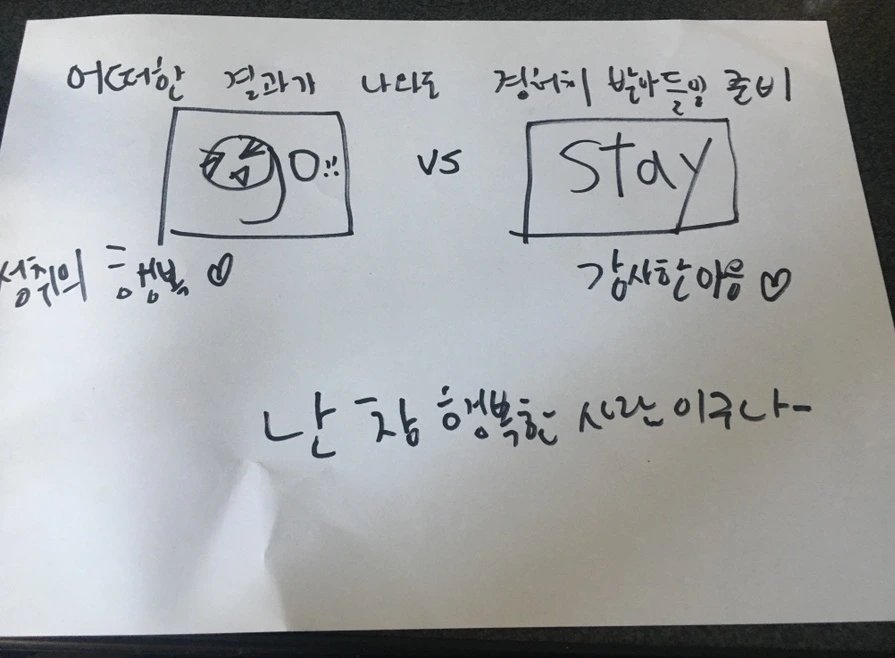 어떠한 결과가 나와도 겸허히 받아들일 준비
go!! vs stay
성취의 행복♡ 감사한 마음♡
난 참 행복한 사람이구나-